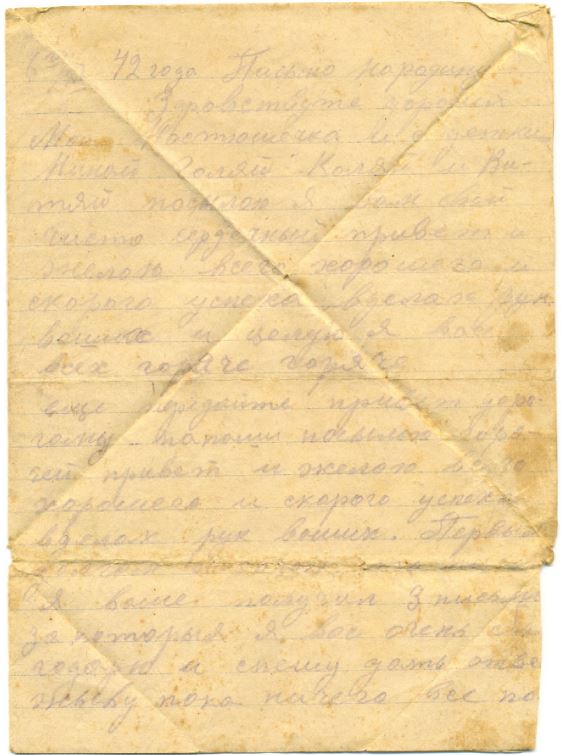 42 года Письмо народину
Здравствуйте дорогая
Моя Настюшечка и с детки
Ниной Галяй Коляй и Ви-
тяй посылою я вам свой
чисто сердечный привет и
желою всего хорошего и
скорого успеха вделах рук
ваших и целую я вас
всех горячо горячо
еще передайте привет доро-
гому папаши посылаю горя-
чей привет и желою всего
хорошего и скорого успеха
вделах рук ваших. Первы
Я ваше получил 3 письма
за которыя я вас очень бла
годарю и спешу дать отве
живу пока ничего все по